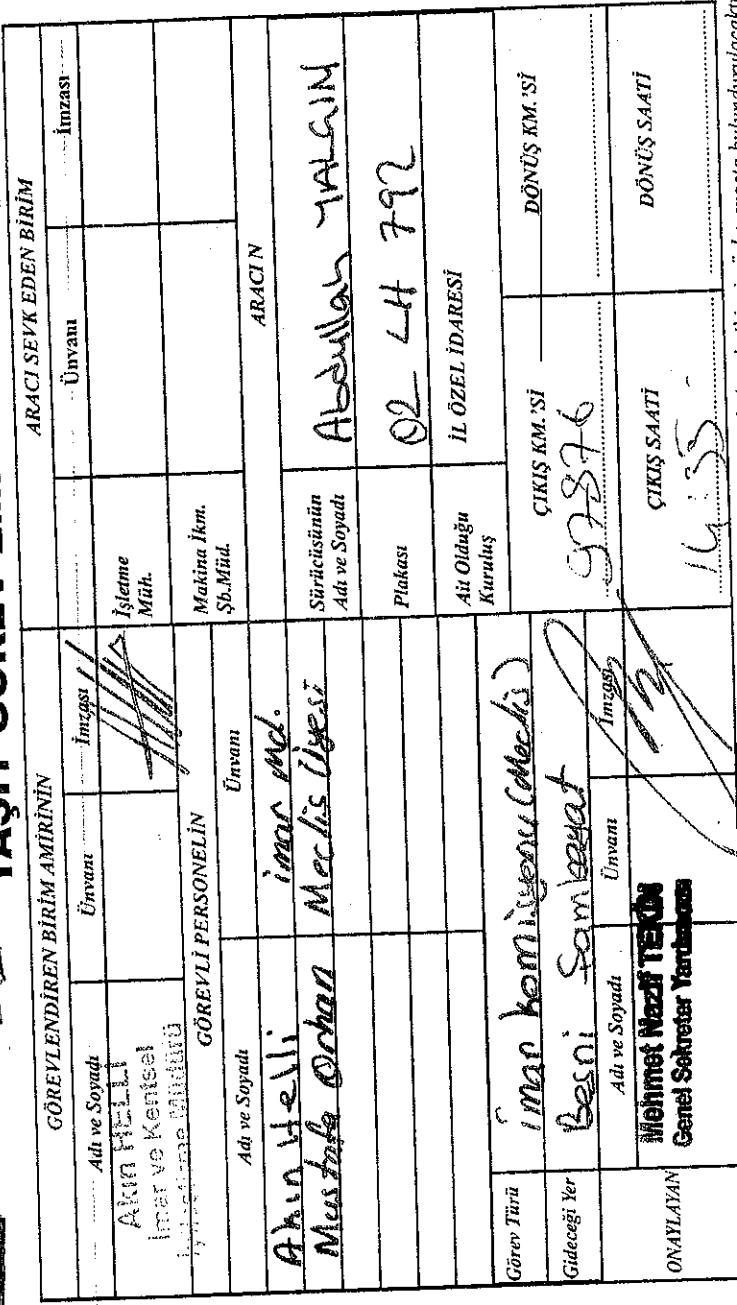 GÖREVLENDİREN BİRİM AMİRİNİN
Adı ve Soyadı Ünvanı İmzası
Akın HELLİ
İmar ve Kentsel
Müdürü
GÖREVLİ PERSONELİN
Adı ve Soyadı Ünvanı
Akın Helli İmar Md.
Mustafa Orhan Meclis Üyesi
Görev Türü İmar Komisyonu (Meclis)
Gideceği Yer Besni Şambayat
Adı ve Soyadı Ünvanı İmzası
ONAYLAYAN
Mehmet Nazif TEKİN
Genel Sekreter Yardımcısı
ARACI SEVK EDEN BİRİM
Ünvanı İmzası
İşletme
Müh.
Makina İkm.
Şb.Müd.
ARACIN
Sürücüsünün
Adı ve Soyadı
Abdullah YALÇIN
Plakası 02 LH 792
Ait Olduğu
Kuruluş
İL ÖZEL İDARESİ
ÇIKIŞ KM.'Sİ DÖNÜŞ KM.'Sİ
97876
ÇIKIŞ SAATİ DÖNÜŞ SAATİ
14:35